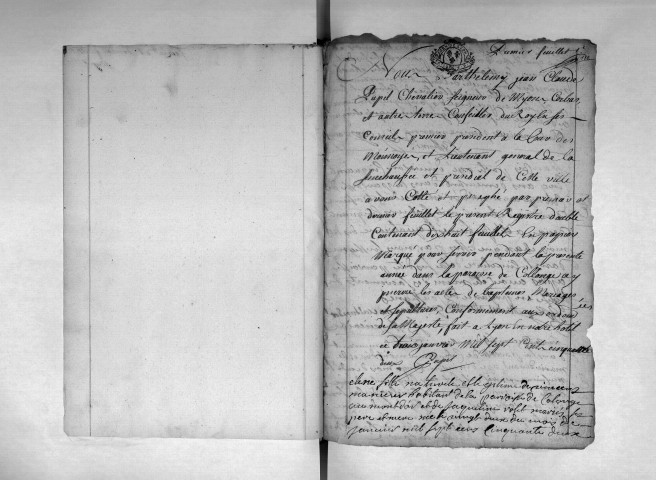 Premier feuillet
Nous Barthelemy jean Claude
Pupil Chevalier Seigneur de Myons Corbas
et autre terre Conseiller du Roy en ses
Conseil premier president a la Cour des
Monnoye, et Lieutenant general de la
Senechaussée et presidial de Cette ville
avons Cotté et paraphé par premier et
dernier feuillet le present Registre double
Contenant dix huit feuillet En papier
Marque pour servir pendant la presente
année dans la paroisse de Collonge a y
inscrire les actes de Baptemes Mariages
et sepultures, Conformement aux ordres
de sa Majesté fait a Lyon en notre hotel
ce trois janvier Mil sept Cent cinquante
deux Pupil
fille naturelle et legitime de vincent
habitant de la paroisse de Colonge
au mont d'or et de jaqueline mariés
pere et mere née le vingt deux du mois de
janvier mil sept cens cinquante deux